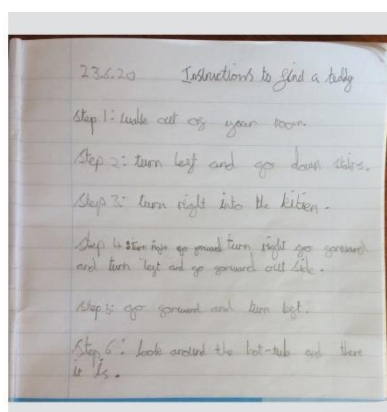 23.6.20 Instructions to find a teddy
Step 1: walk out of your room.
Step 2: turn left and go down stairs.
Step 3: turn right into the kitien.
Step 4: turn right go forward turn right go forward
and turn left and go forward out side.
Step 5: go forward and turn left.
Step 6: look around the hot-tub and there
it is.